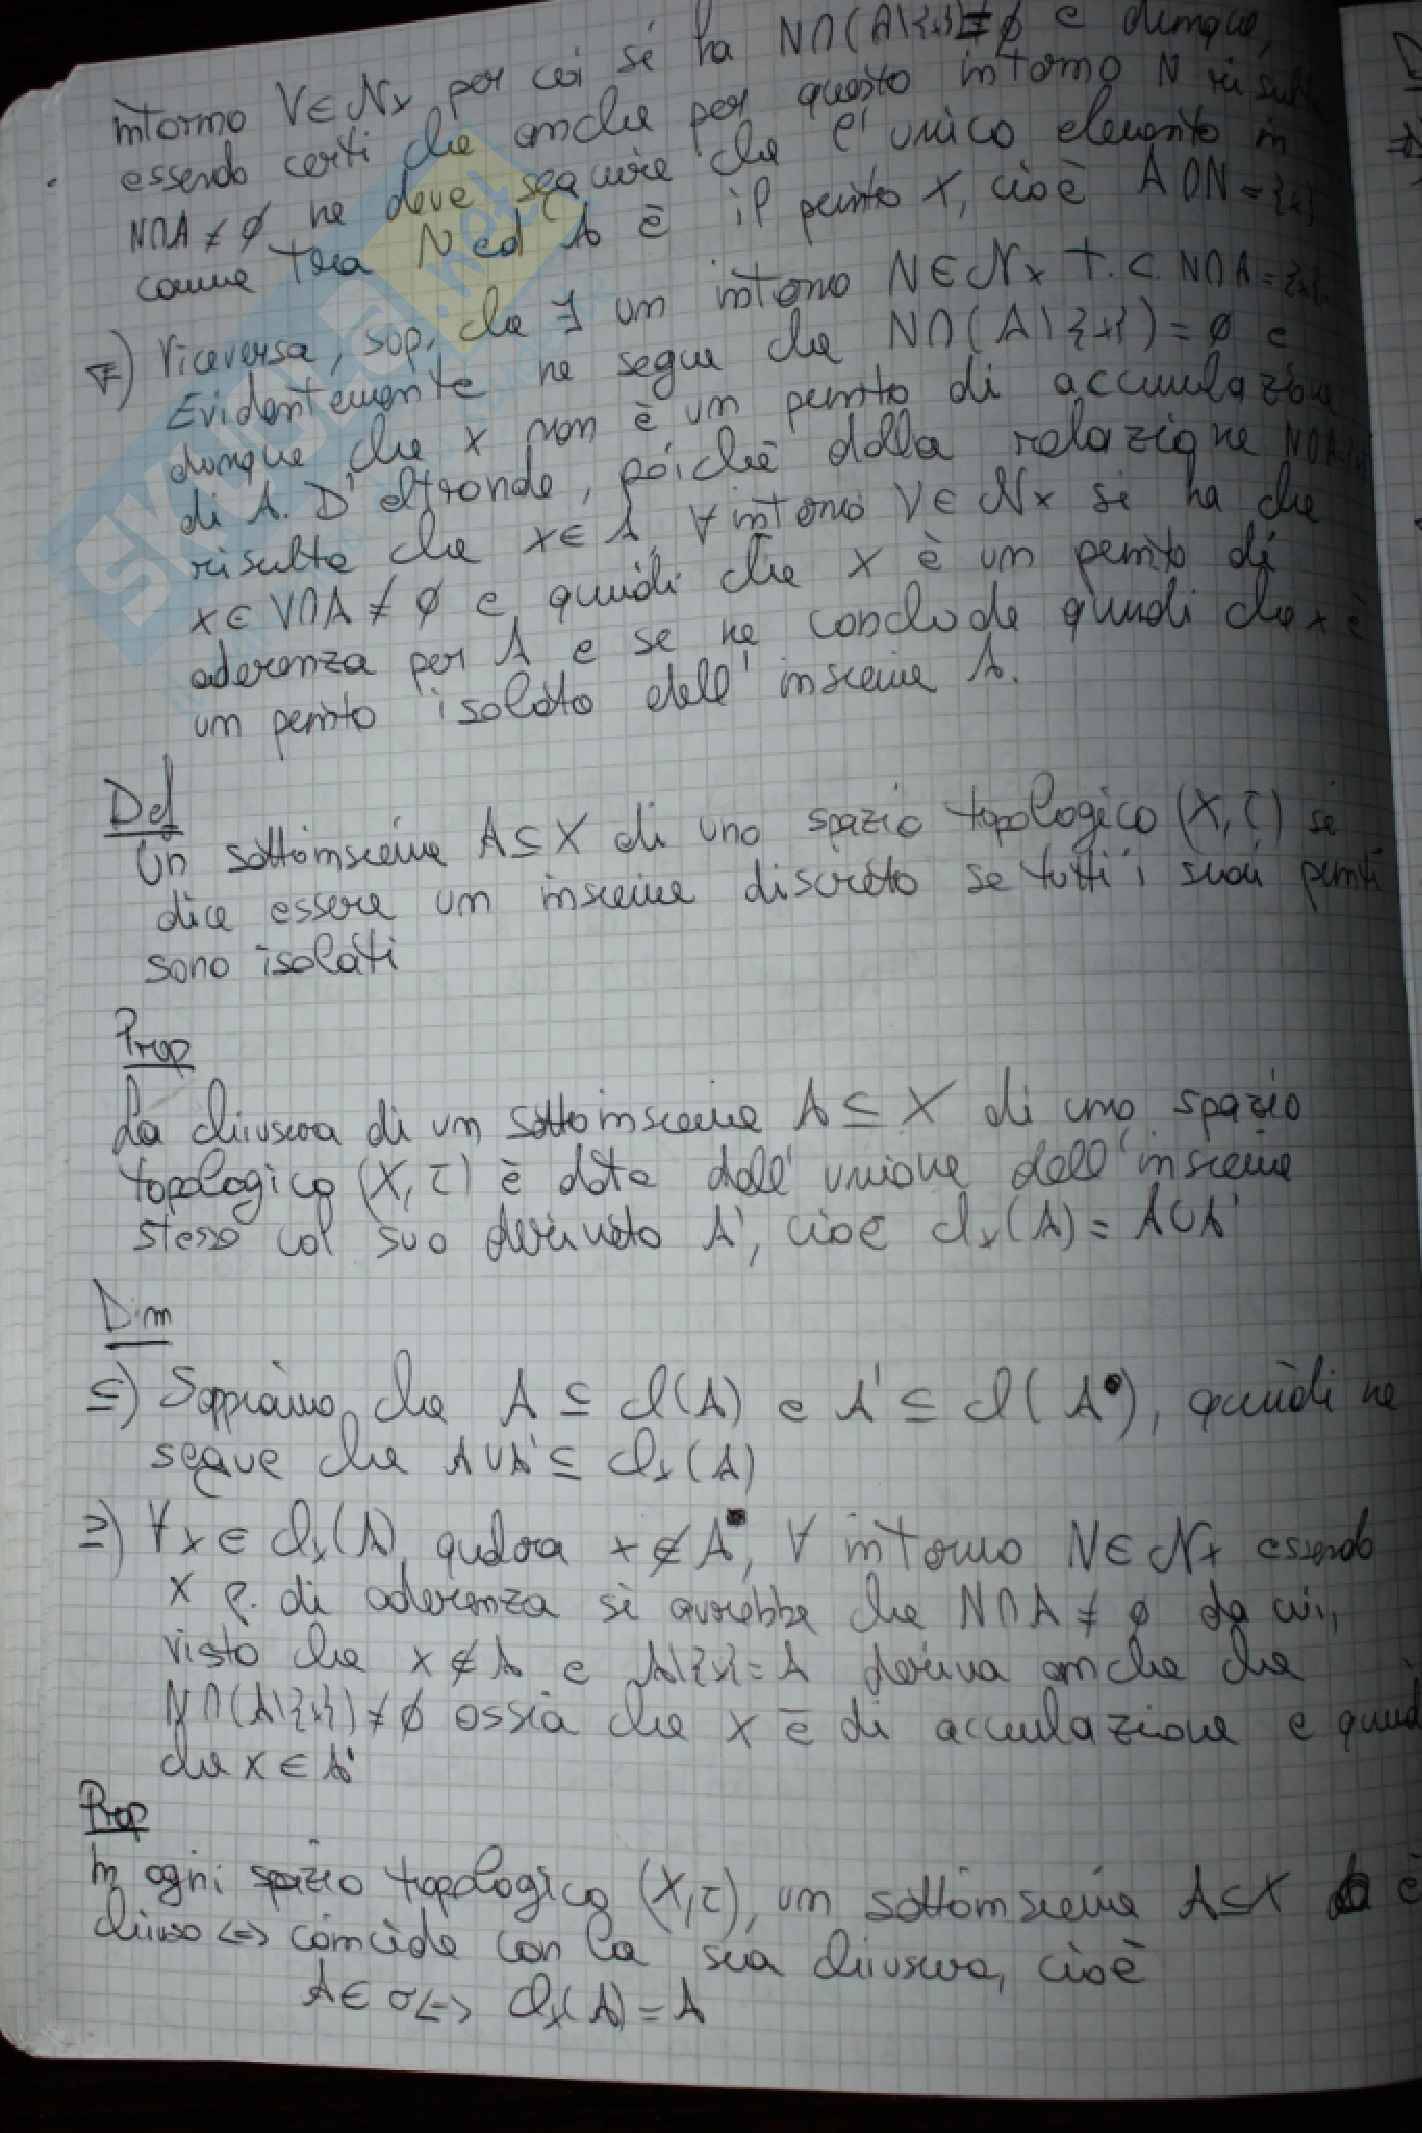 intorno V∈Nx per cui si ha N∩(A\{x})≠∅ e dunque,
essendo certi che anche per questo intorno N risulta
N∩A≠∅ ne deve seguire che l'unico elemento in
comune tra N ed A è il punto x, cioè A∩N={x}
⇐) Viceversa, sop. che ∃ un intorno N∈Nx t.c. N∩A={x}.
Evidentemente ne segue che N∩(A\{x})=∅ e
dunque che x non è un punto di accumulazione
di A. D'altronde, poiché dalla relazione N∩A={x}
risulta che x∈A, ∀ intorno V∈Nx si ha che
x∈V∩A≠∅ e quindi che x è un punto di
aderenza per A e se ne conclude quindi che x è
un punto isolato dell'insieme A.
Def
Un sottoinsieme A⊆X di uno spazio topologico (X,τ) si
dice essere un insieme discreto se tutti i suoi punti
sono isolati
Prop
La chiusura di un sottoinsieme A⊆X di uno spazio
topologico (X,τ) è data dall'unione dell'insieme
stesso col suo derivato A', cioè clx(A)=A∪A'
Dim
⊆) Sappiamo che A⊆cl(A) e A'⊆cl(A), quindi ne
segue che A∪A'⊆clx(A)
⊇) ∀x∈clx(A), qualora x∉A, ∀ intorno N∈Nx essendo
x p. di aderenza si avrebbe che N∩A≠∅ da cui,
visto che x∉A e A\{x}=A deriva anche che
N∩(A\{x})≠∅ ossia che x è di accumulazione e quindi
che x∈A'
Prop
In ogni spazio topologico (X,τ), un sottoinsieme A⊆X è
chiuso ⇔ coincide con la sua chiusura, cioè
A∈σ⇔clx(A)=A
SKUOLA.net